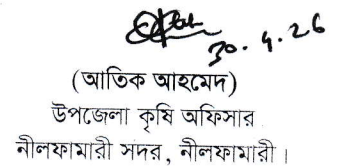 ৩০.৪.২৬
(আতিক আহমেদ)
উপজেলা কৃষি অফিসার
নীলফামারী সদর, নীলফামারী।